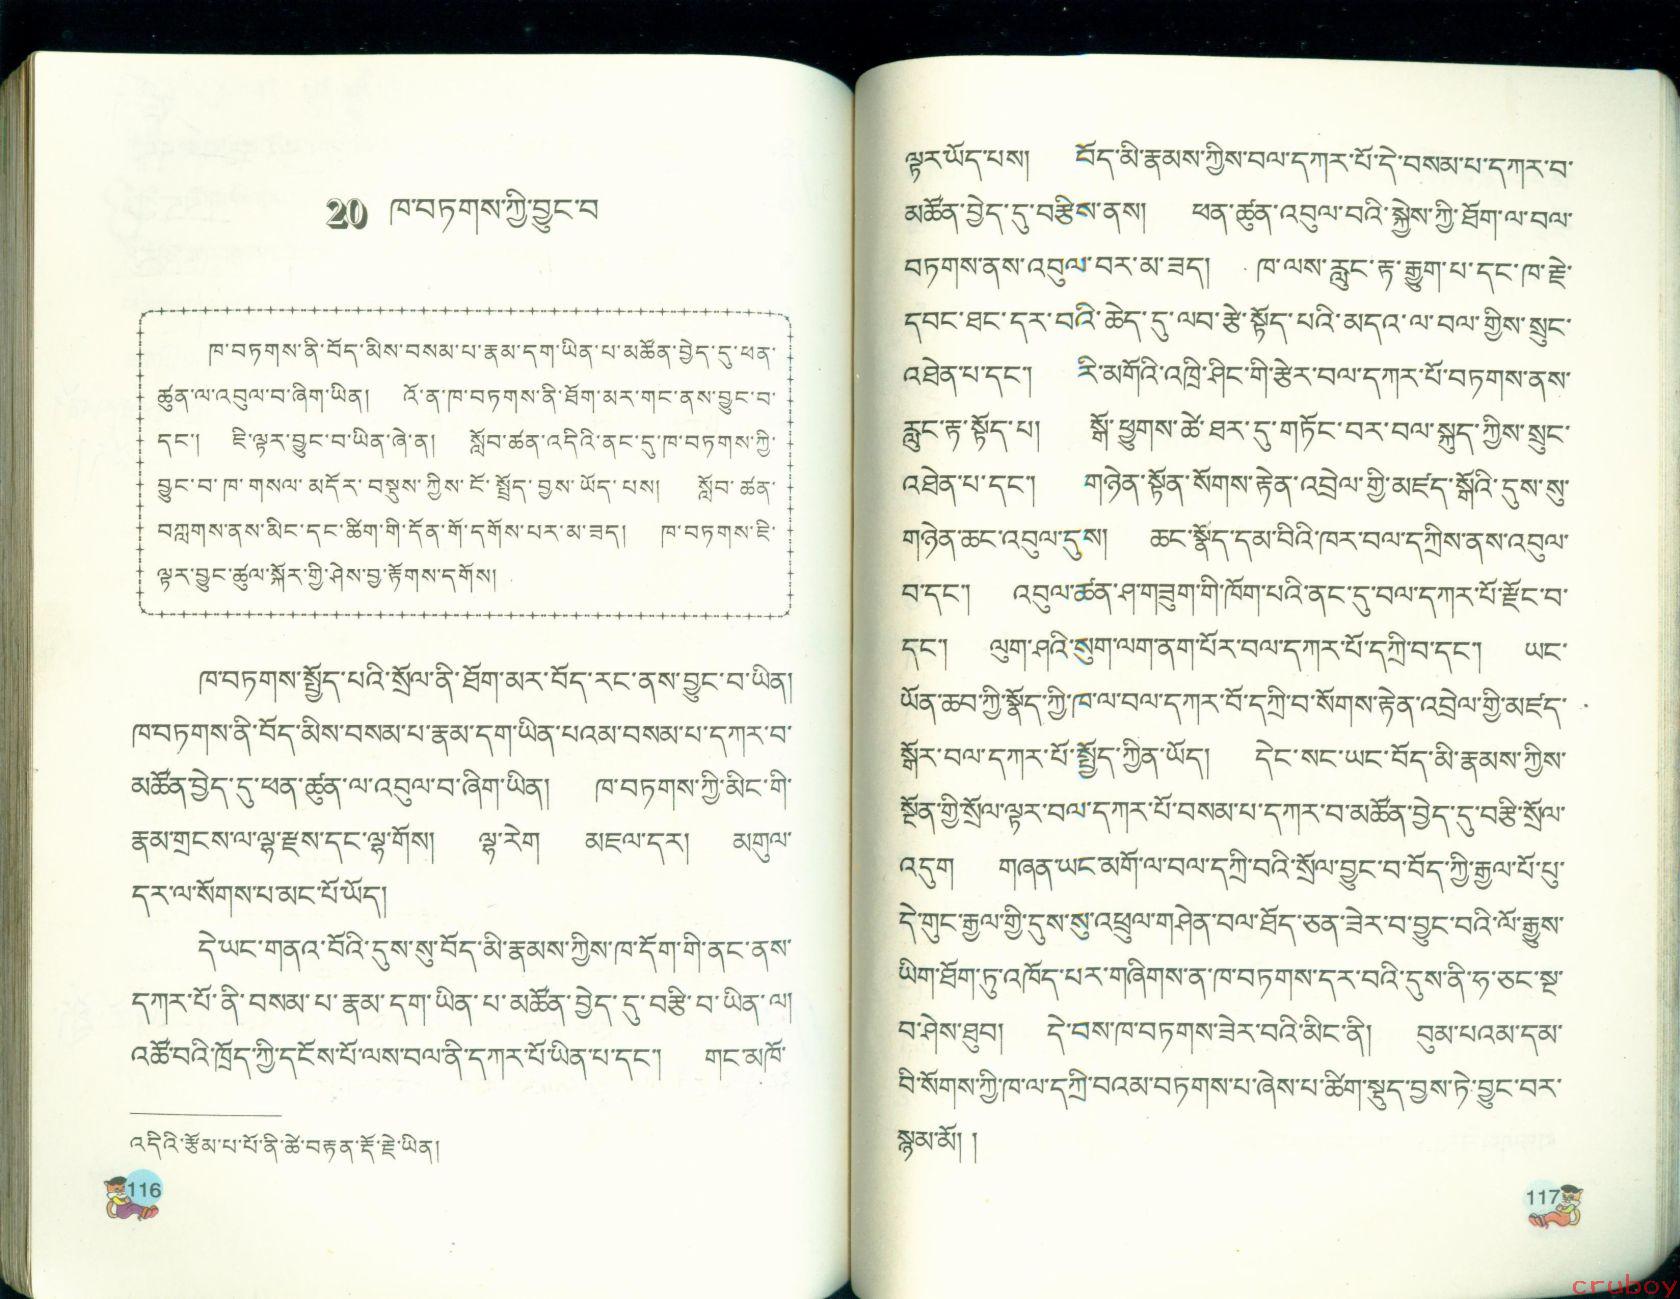 20 ཁ་བཏགས་ཀྱི་བྱུང་བ
ཁ་བཏགས་ནི་བོད་མིས་བསམ་པ་རྣམ་དག་ཡིན་པ་མཚོན་བྱེད་དུ་ཕན་
ཚུན་ལ་འབུལ་བ་ཞིག་ཡིན། འོ་ན་ཁ་བཏགས་ནི་ཐོག་མར་གང་ནས་བྱུང་བ་
དང་། ཇི་ལྟར་བྱུང་བ་ཡིན་ཞེ་ན། སློབ་ཚན་འདིའི་ནང་དུ་ཁ་བཏགས་ཀྱི་
བྱུང་བ་ཁ་གསལ་མདོར་བསྡུས་ཀྱིས་ངོ་སྤྲོད་བྱས་ཡོད་པས། སློབ་ཚན་
བཀླགས་ནས་མིང་དང་ཚིག་གི་དོན་གོ་དགོས་པར་མ་ཟད། ཁ་བཏགས་ཇི་
ལྟར་བྱུང་ཚུལ་སྐོར་གྱི་ཤེས་བྱ་རྟོགས་དགོས།
ཁ་བཏགས་སྤྱོད་པའི་སྲོལ་ནི་ཐོག་མར་བོད་རང་ནས་བྱུང་བ་ཡིན།
ཁ་བཏགས་ནི་བོད་མིས་བསམ་པ་རྣམ་དག་ཡིན་པའམ་བསམ་པ་དཀར་བ་
མཚོན་བྱེད་དུ་ཕན་ཚུན་ལ་འབུལ་བ་ཞིག་ཡིན། ཁ་བཏགས་ཀྱི་མིང་གི་
རྣམ་གྲངས་ལ་ལྷ་རྫས་དང་ལྷ་གོས། ལྷ་རེག མཇལ་དར། མགུལ་
དར་ལ་སོགས་པ་མང་པོ་ཡོད།
དེ་ཡང་གནའ་བོའི་དུས་སུ་བོད་མི་རྣམས་ཀྱིས་ཁ་དོག་གི་ནང་ནས་
དཀར་པོ་ནི་བསམ་པ་རྣམ་དག་ཡིན་པ་མཚོན་བྱེད་དུ་བརྩི་བ་ཡིན་ལ།
འཚོ་བའི་ཁྲོད་ཀྱི་དངོས་པོ་ལས་བལ་ནི་དཀར་པོ་ཡིན་པ་དང་། གང་མཁོ་
འདིའི་རྩོམ་པ་པོ་ནི་ཚེ་བརྟན་རྡོ་རྗེ་ཡིན།
116
ལྟར་ཡོད་པས། བོད་མི་རྣམས་ཀྱིས་བལ་དཀར་པོ་དེ་བསམ་པ་དཀར་བ་
མཚོན་བྱེད་དུ་བརྩིས་ནས། ཕན་ཚུན་འབུལ་བའི་སྐྱེས་ཀྱི་ཐོག་ལ་བལ་
བཏགས་ནས་འབུལ་བར་མ་ཟད། ཁ་ལས་རླུང་རྟ་རྒྱུག་པ་དང་ཁ་རྗེ་
དབང་ཐང་དར་བའི་ཆེད་དུ་ལབ་རྩེ་སྟོད་པའི་མདའ་ལ་བལ་གྱིས་སྲུང་
འཐེན་པ་དང་། རི་མགོའི་འཁྲི་ཤིང་གི་རྩེར་བལ་དཀར་པོ་བཏགས་ནས་
རླུང་རྟ་སྟོད་པ། སྒོ་ཕྱུགས་ཚེ་ཐར་དུ་གཏོང་བར་བལ་སྐུད་ཀྱིས་སྲུང་
འཐེན་པ་དང་། གཉེན་སྟོན་སོགས་རྟེན་འབྲེལ་གྱི་མཛད་སྒོའི་དུས་སུ་
གཉེན་ཆང་འབུལ་དུས། ཆང་སྣོད་དམ་བིའི་ཁར་བལ་དཀྲིས་ནས་འབུལ་
བ་དང་། འབུལ་ཚན་ཤ་གཟུག་གི་ཁོག་པའི་ནང་དུ་བལ་དཀར་པོ་རྫོང་བ་
དང་། ལུག་ཤའི་སུག་ལག་ནག་པོར་བལ་དཀར་པོ་དཀྲི་བ་དང་། ཡང་
ཡོན་ཆབ་ཀྱི་སྣོད་ཀྱི་ཁ་ལ་བལ་དཀར་པོ་དཀྲི་བ་སོགས་རྟེན་འབྲེལ་གྱི་མཛད་
སྒོར་བལ་དཀར་པོ་སྤྱོད་ཀྱིན་ཡོད། དེང་སང་ཡང་བོད་མི་རྣམས་ཀྱིས་
སྔོན་གྱི་སྲོལ་ལྟར་བལ་དཀར་པོ་བསམ་པ་དཀར་བ་མཚོན་བྱེད་དུ་བརྩི་སྲོལ་
འདུག གཞན་ཡང་མགོ་ལ་བལ་དཀྲི་བའི་སྲོལ་བྱུང་བ་བོད་ཀྱི་རྒྱལ་པོ་པུ་
དེ་གུང་རྒྱལ་གྱི་དུས་སུ་འཕྲུལ་གཤེན་བལ་ཐོད་ཅན་ཟེར་བ་བྱུང་བའི་ལོ་རྒྱུས་
ཡིག་ཐོག་ཏུ་འཁོད་པར་གཞིགས་ན་ཁ་བཏགས་དར་བའི་དུས་ནི་ཧ་ཅང་སྔ་
བ་ཤེས་ཐུབ། དེ་བས་ཁ་བཏགས་ཟེར་བའི་མིང་ནི། བུམ་པའམ་དམ་
བི་སོགས་ཀྱི་ཁ་ལ་དཀྲི་བའམ་བཏགས་པ་ཞེས་པ་ཚིག་སྡུད་བྱས་ཏེ་བྱུང་བར་
སྙམ་མོ། །
117
cruboy